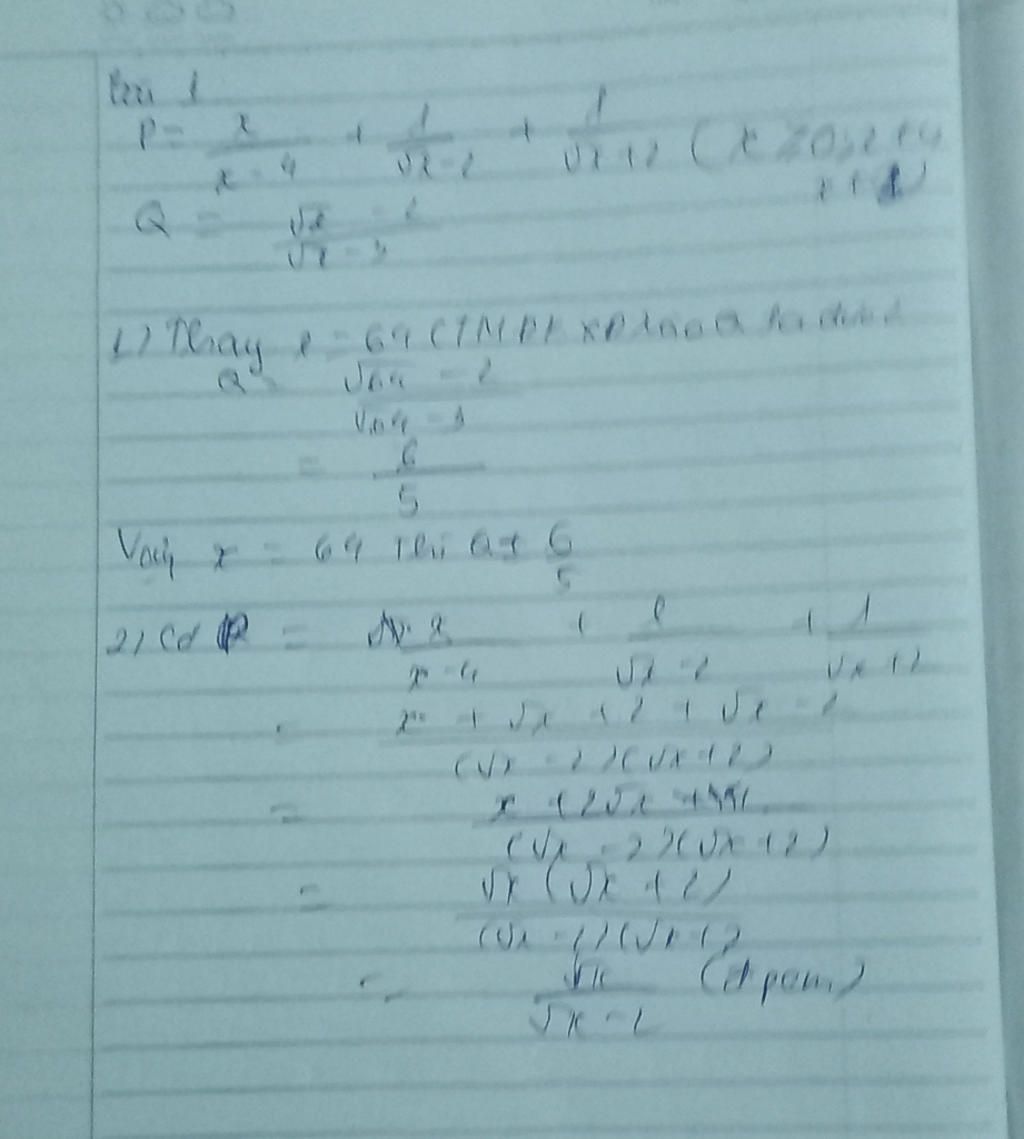 Bài 1
P = x/(x - 4) + 1/(√x - 2) + 1/(√x + 2) (x ≥ 0, x ≠ 4
Q = (√x - 2)/(√x - 3)
1) Thay x = 64 (TMĐK XĐ) vào Q ta được
Q = (√64 - 2)/(√64 - 3)
= 6/5
Vậy x = 64 thì Q = 6/5
2) Có P = x/(x - 4) + 1/(√x - 2) + 1/(√x + 2)
= (x + √x + 2 + √x - 2)/((√x - 2)(√x + 2))
= (x + 2√x)/((√x - 2)(√x + 2))
= (√x (√x + 2))/((√x - 2)(√x + 2)
= √x/(√x - 2) (đpcm)